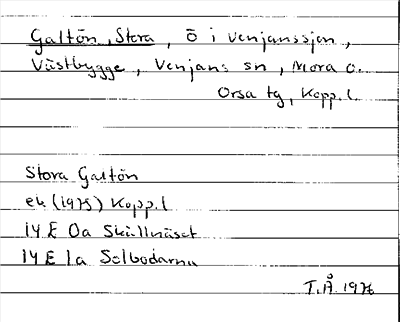 Galtön, Stora, ö i Venjanssjön,
Västbygge, Venjans sn, Mora o.
Orsa tg, Kopp. l.
Stora Galtön
ek (1975) Kopp. l
14 E 0a Skållnäset
14 E 1a Solbodarna
T.Å. 1976